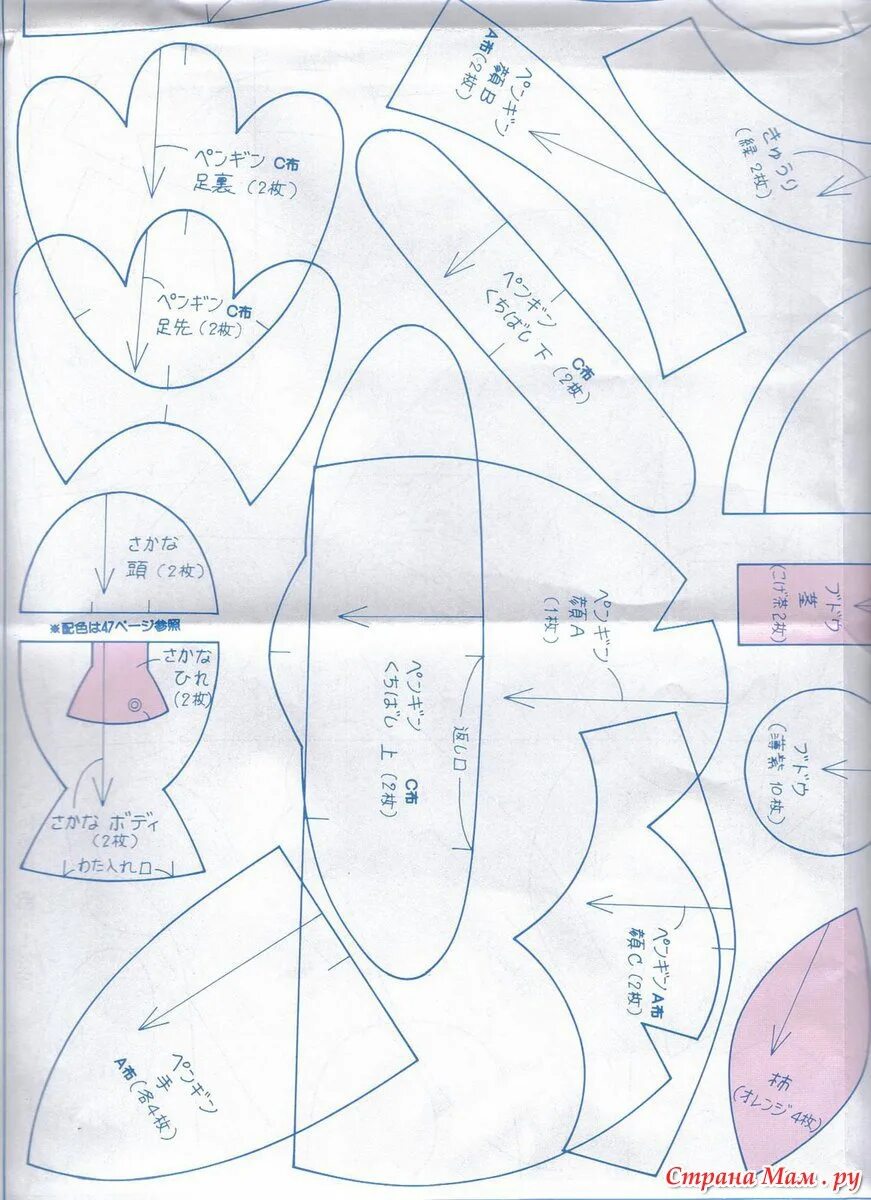 ペンギン C布
足裏(2枚)
ペンギン C布
足先(2枚)
ペンギン
顔B
A布(2枚)
きゅうり
(緑 2枚)
ペンギン
くちばし 下 C布
(2枚)
さかな
頭 (2枚)
※配色は47ページ参照
さかな
ひれ
(2枚)
さかな ボディ
(2枚)
わた入れ口
ペンギン
顔A
(1枚)
ペンギン
くちばし 上 C布
(2枚)
返し口
ブドウ
茎
(こげ茶2枚)
ブドウ
(薄紫 10枚)
ペンギン A布
顔C (2枚)
ペンギン
手
A布(各4枚)
柿
(オレンジ4枚)
Страна Мам.ру